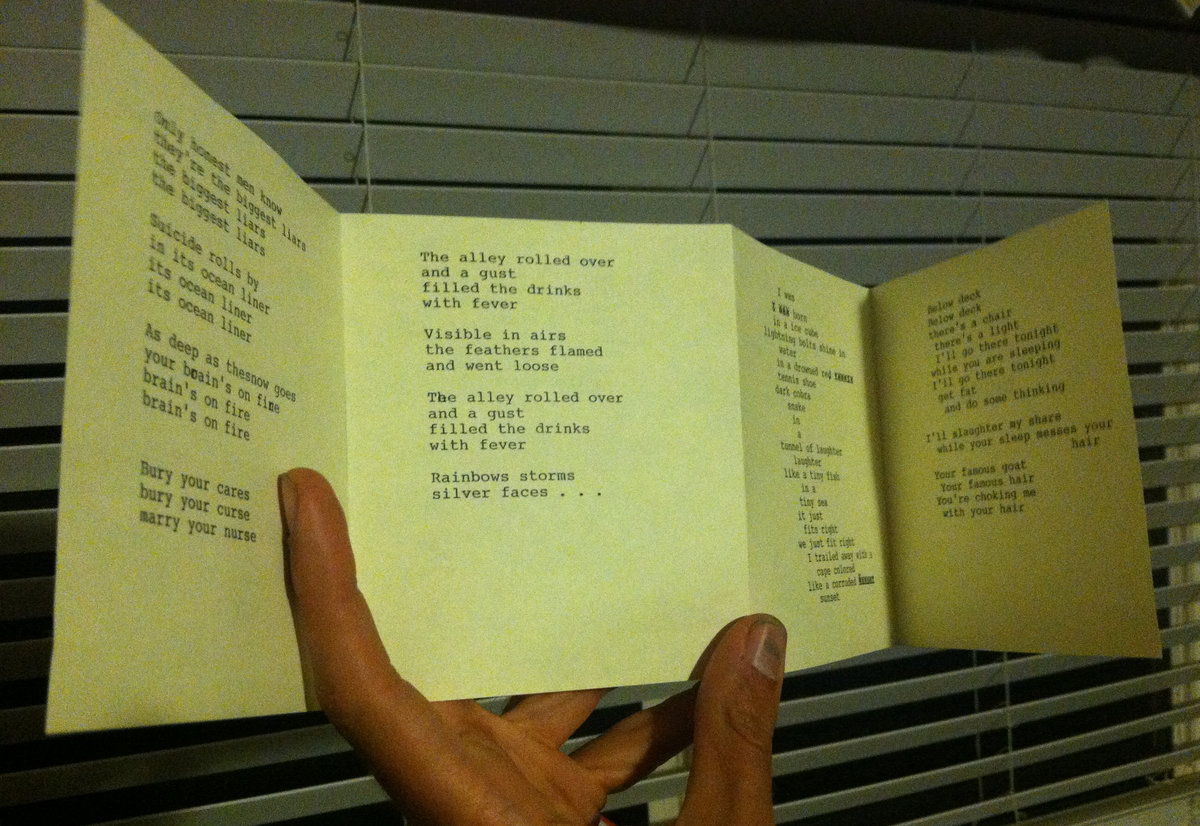 Only honest men know
they're the biggest liars
the biggest liars
the biggest liars
Suicide rolls by
in its ocean liner
its ocean liner
its ocean liner
As deep as thesnow goes
your brain's on fire
brain's on fire
brain's on fire
Bury your cares
bury your curse
marry your nurse
The alley rolled over
and a gust
filled the drinks
with fever
Visible in airs
the feathers flamed
and went loose
The alley rolled over
and a gust
filled the drinks
with fever
Rainbows storms
silver faces . . .
I was
born
in a ice cube
lightning bolts shine in
water
in a drowned red
tennis shoe
dark cobra
snake
in
a
tunnel of laughter
laughter
like a tiny fish
in a
tiny sea
it just
fits right
we just fit right
I trailed away with a
cape colored
like a corroded
sunset
Below deck
Below deck
there's a chair
there's a light
I'll go there tonight
while you are sleeping
I'll go there tonight
get fat
and do some thinking
I'll slaughter my share
while your sleep messes your
hair
Your famous goat
Your famous hair
You're choking me
with your hair